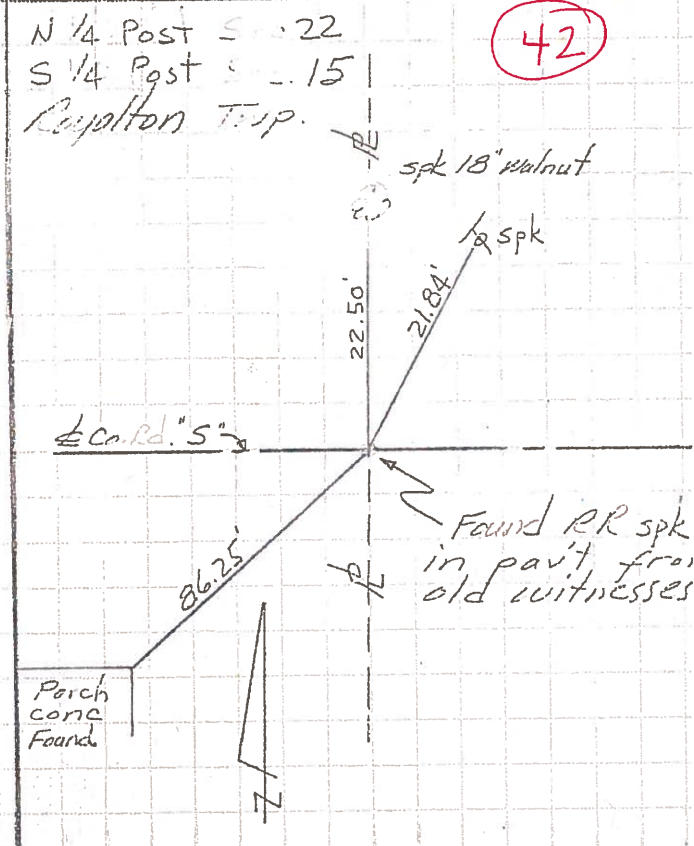 N 1/4 Post S 22
42
S 1/4 Post S 15
Royalton Twp.
PL
spk 18" walnut
spk
22.50'
21.84'
℄ Co. Rd. "S"
Found RR spk
in pav't from
old witnesses
86.25'
PL
Porch
conc
Found.
N